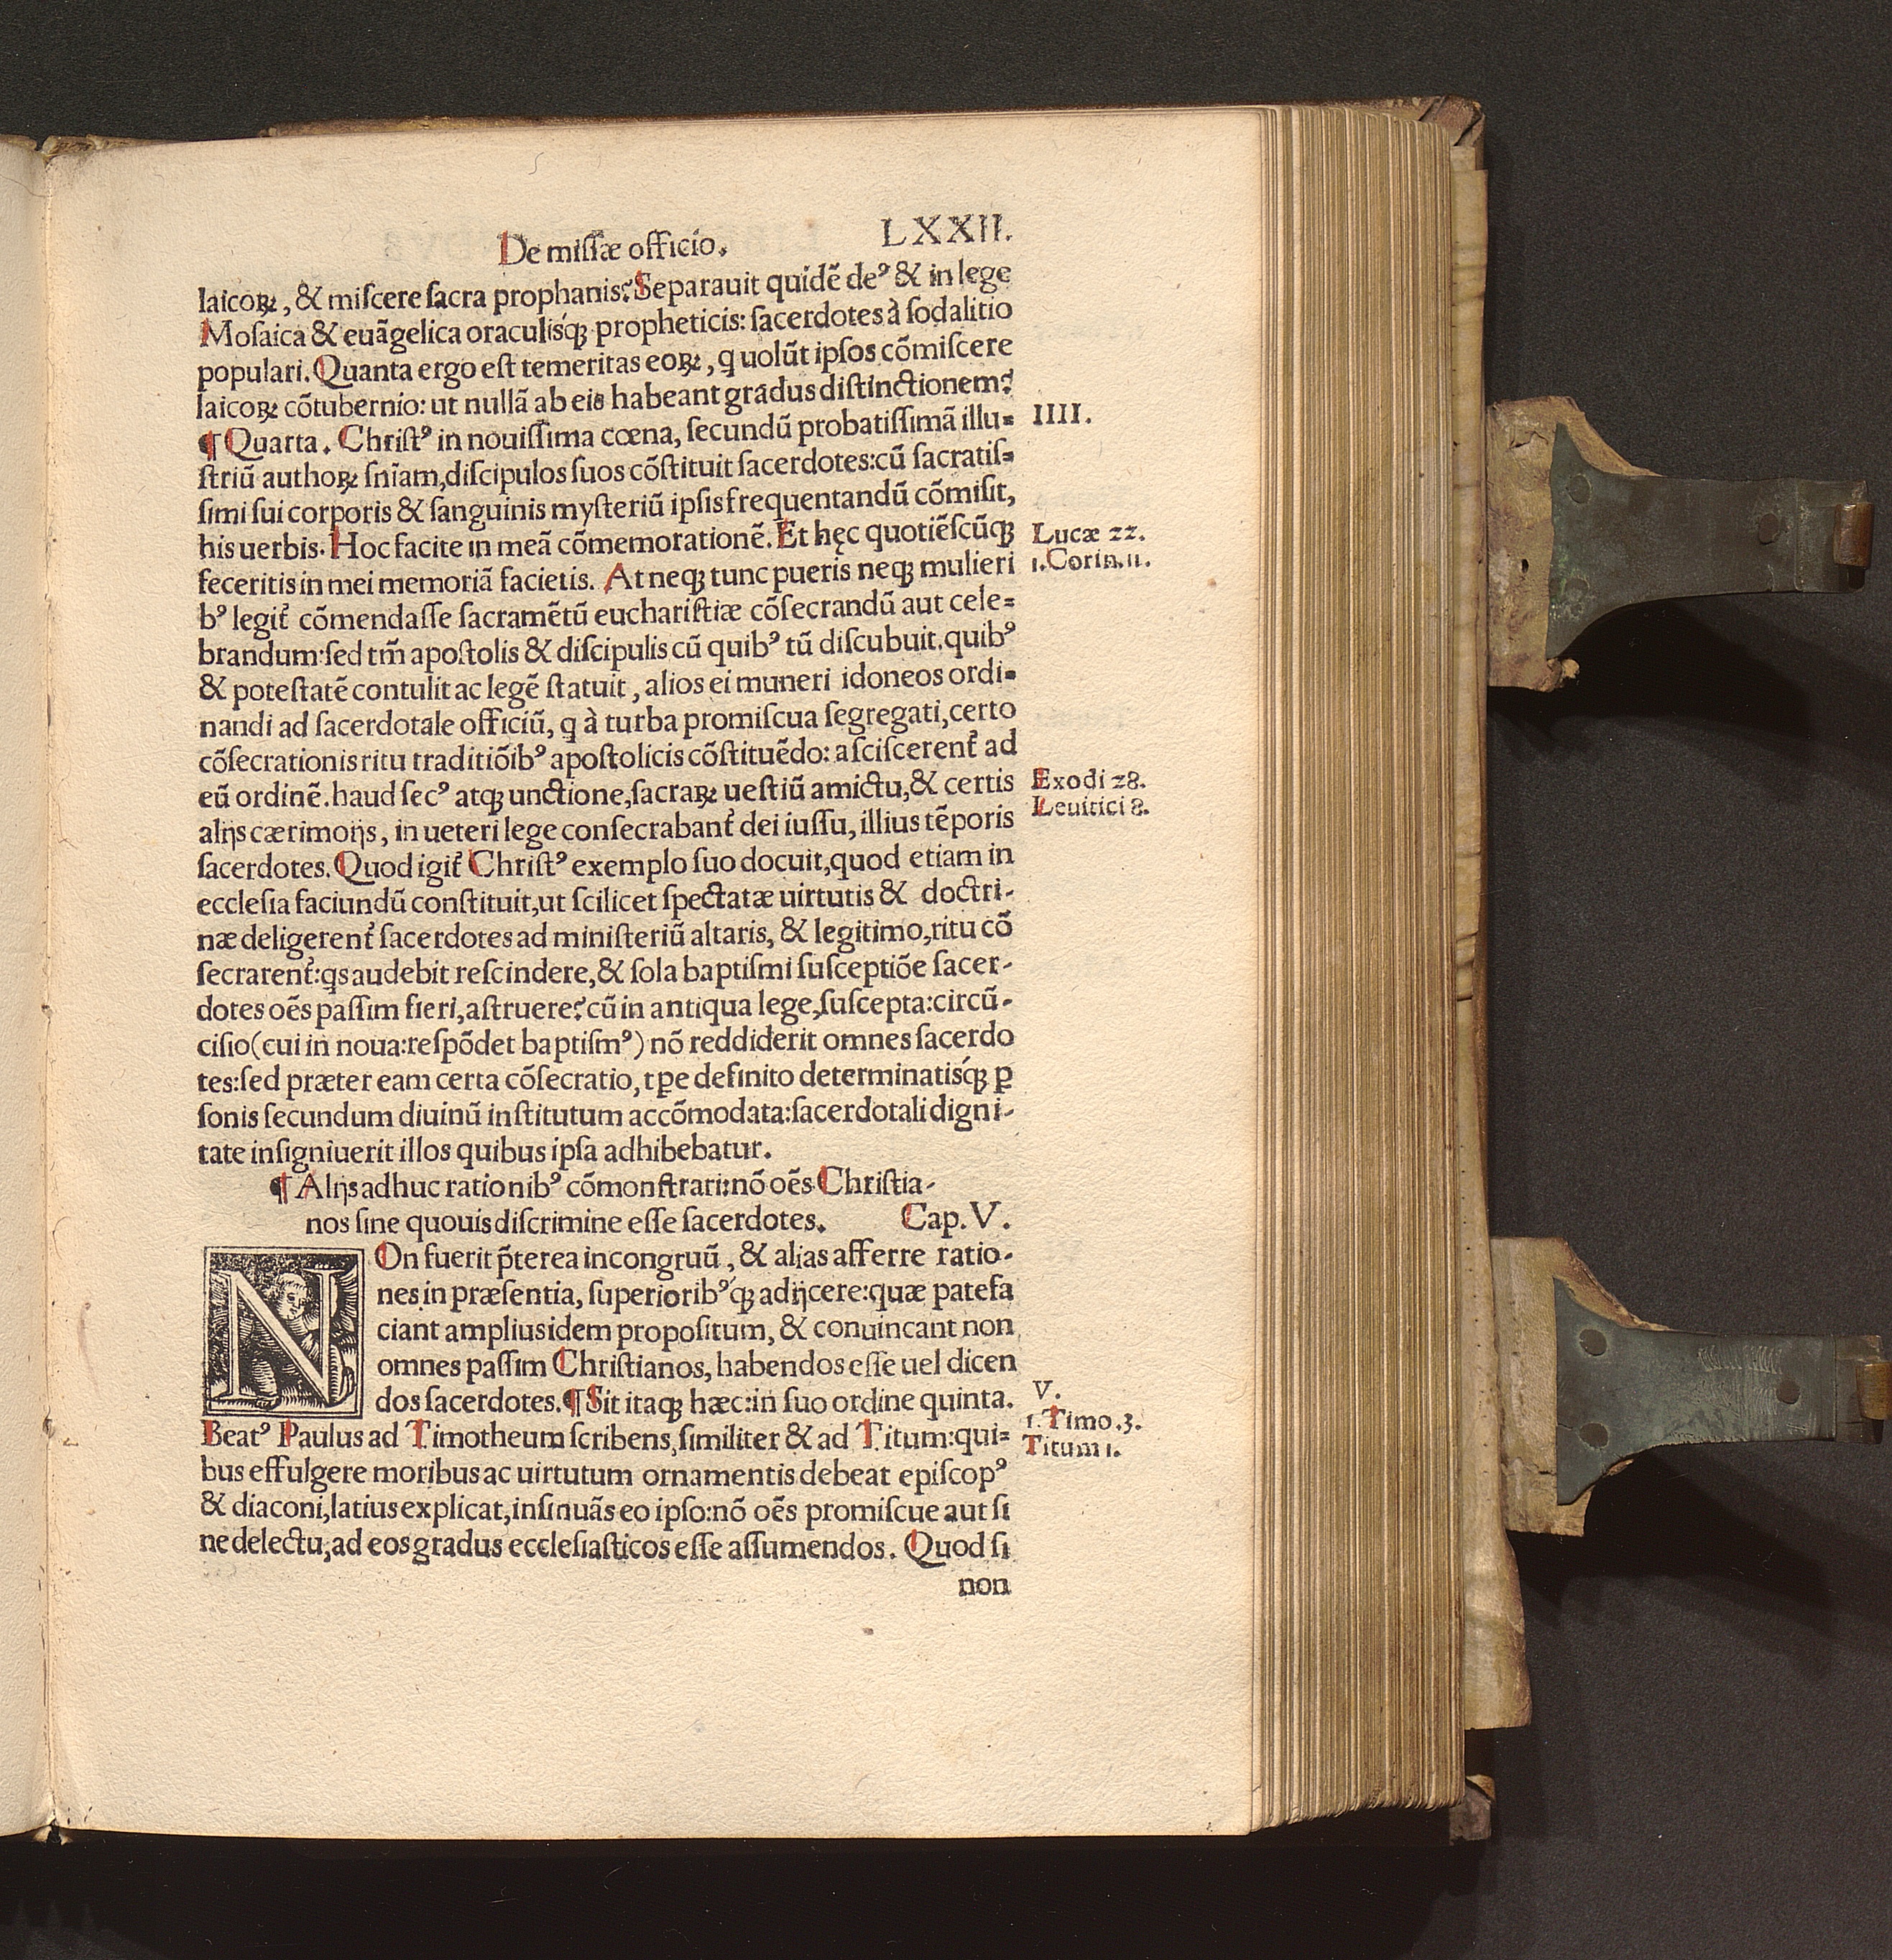 De miſſæ officio.
LXXII.
laicoꝝ, & miſcere ſacra prophanis? Separauit quidẽ deꝰ & in lege
Moſaica & euãgelica oraculisq́ꝫ propheticis: ſacerdotes à ſodalitio
populari. Quanta ergo eſt temeritas eoꝝ, q uolũt ipſos cõmiſcere
laicoꝝ cõtubernio: ut nullã ab eis habeant gradus diſtinctionem?
¶ Quarta. Chriſtꝰ in nouiſſima cœna, ſecundũ probatiſſimã illu=
IIII.
ſtriũ authoꝝ ſnĩam, diſcipulos ſuos cõſtituit ſacerdotes: cũ ſacratiſ=
ſimi ſui corporis & ſanguinis myſteriũ ipſis frequentandũ cõmiſit,
his uerbis. Hoc facite in meã cõmemorationẽ. Et hęc quotiẽſcũqꝫ
Lucæ 22.
feceritis in mei memoriã facietis. At neqꝫ tunc pueris neqꝫ mulieri
1. Corin. 11.
bꝰ legit᷑ cõmendaſſe ſacramẽtũ euchariſtiæ cõſecrandũ aut cele=
brandum: ſed tm̃ apoſtolis & diſcipulis cũ quibꝰ tũ diſcubuit. quibꝰ
& poteſtatẽ contulit ac legẽ ſtatuit, alios ei muneri idoneos ordi=
nandi ad ſacerdotale officiũ, q à turba promiſcua ſegregati, certo
cõſecrationis ritu traditiõibꝰ apoſtolicis cõſtituẽdo: aſciſcerent᷑ ad
eũ ordinẽ. haud ſecꝰ atqꝫ unctione, ſacraꝝ ueſtiũ amictu, & certis
Exodi 28.
alijs cærimonijs, in ueteri lege conſecrabant᷑ dei iuſſu, illius tẽporis
Leuitici 8.
ſacerdotes. Quod igit᷑ Chriſtꝰ exemplo ſuo docuit, quod etiam in
eccleſia faciundũ conſtituit, ut ſcilicet ſpectatæ uirtutis & doctri-
næ deligerent᷑ ſacerdotes ad miniſteriũ altaris, & legitimo, ritu cõ
ſecrarent᷑: qs audebit reſcindere, & ſola baptiſmi ſuſceptiõe ſacer-
dotes oẽs paſſim fieri, aſtruere? cũ in antiqua lege, ſuſcepta: circũ-
ciſio (cui in noua: reſpõdet baptiſmꝰ) nõ reddiderit omnes ſacerdo
tes: ſed præter eam certa cõſecratio, tꝑe definito determinatisq́ꝫ ꝑ
ſonis ſecundum diuinũ inſtitutum accõmodata: ſacerdotali digni-
tate inſigniuerit illos quibus ipſa adhibebatur.
¶ Alijs adhuc rationibꝰ cõmonſtrari: nõ oẽs Chriſtia-
nos ſine quouis diſcrimine eſſe ſacerdotes. Cap. V.
NOn fuerit p̃terea incongruũ, & alias afferre ratio-
nes in præſentia, ſuperioribꝰq́ꝫ adijcere: quæ patefa
ciant amplius idem propoſitum, & conuincant non
omnes paſſim Chriſtianos, habendos eſſe uel dicen
dos ſacerdotes. ¶ Sit itaqꝫ hæc: in ſuo ordine quinta.
V.
Beatꝰ Paulus ad Timotheum ſcribens, ſimiliter & ad Titum: qui=
1. Timo. 3.
Titum 1.
bus effulgere moribus ac uirtutum ornamentis debeat epiſcopꝰ
& diaconi, latius explicat, inſinuãs eo ipſo: nõ oẽs promiſcue aut ſi
ne delectu, ad eos gradus eccleſiaſticos eſſe aſſumendos. Quod ſi
non